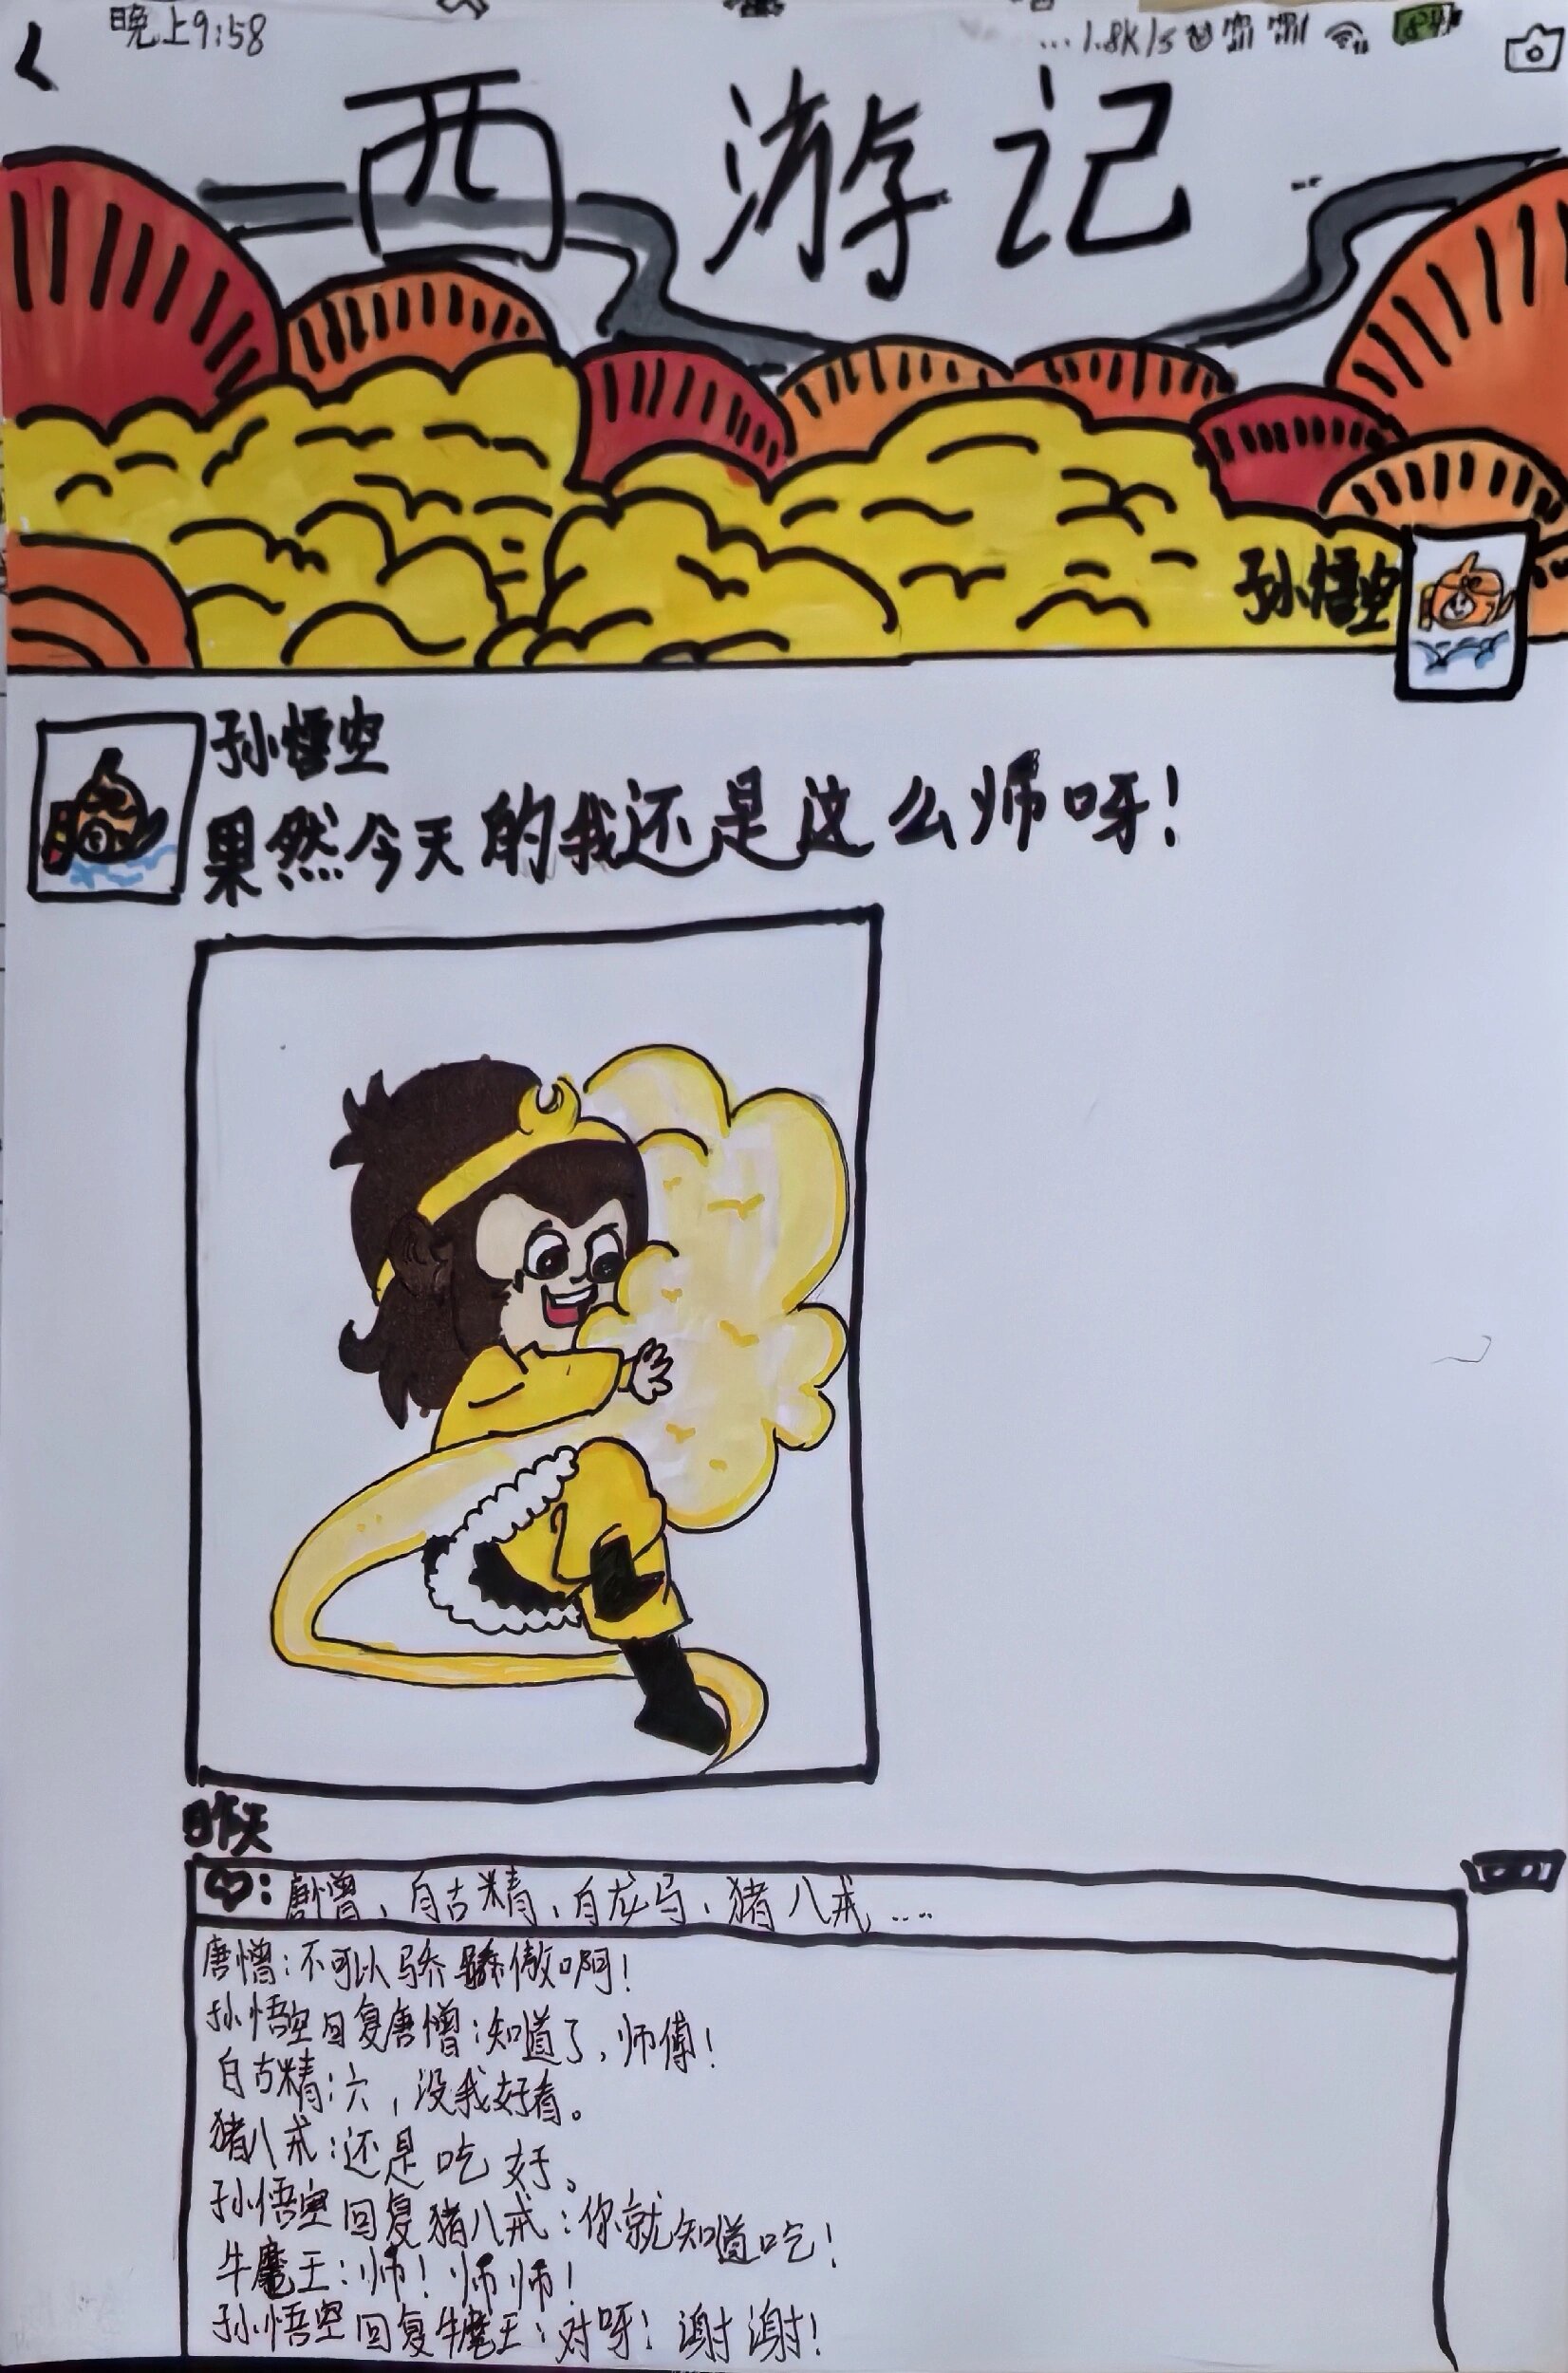 晚上9:58 ...1.8K/s 84
西游记
孙悟空
孙悟空
果然今天的我还是这么师呀!
昨天
: 唐憎、自古精、自龙马、猪八戒....
唐憎:不可以骄傲啊!
孙悟空回复唐憎:知道了,师傅!
自古精:六,没我好看。
猪八戒:还是吃好。
孙悟空回复猪八戒:你就知道吃!
牛魔王:师!师师!
孙悟空回复牛魔王:对呀!谢谢!